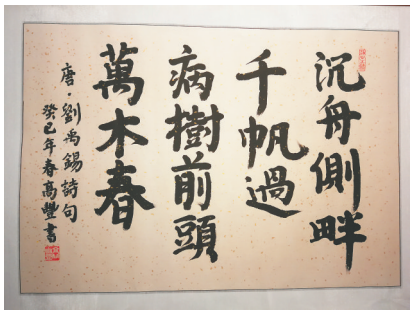 沉舟側畔
千帆過
病樹前頭
萬木春
唐·劉禹錫詩句
癸巳年春高豐書